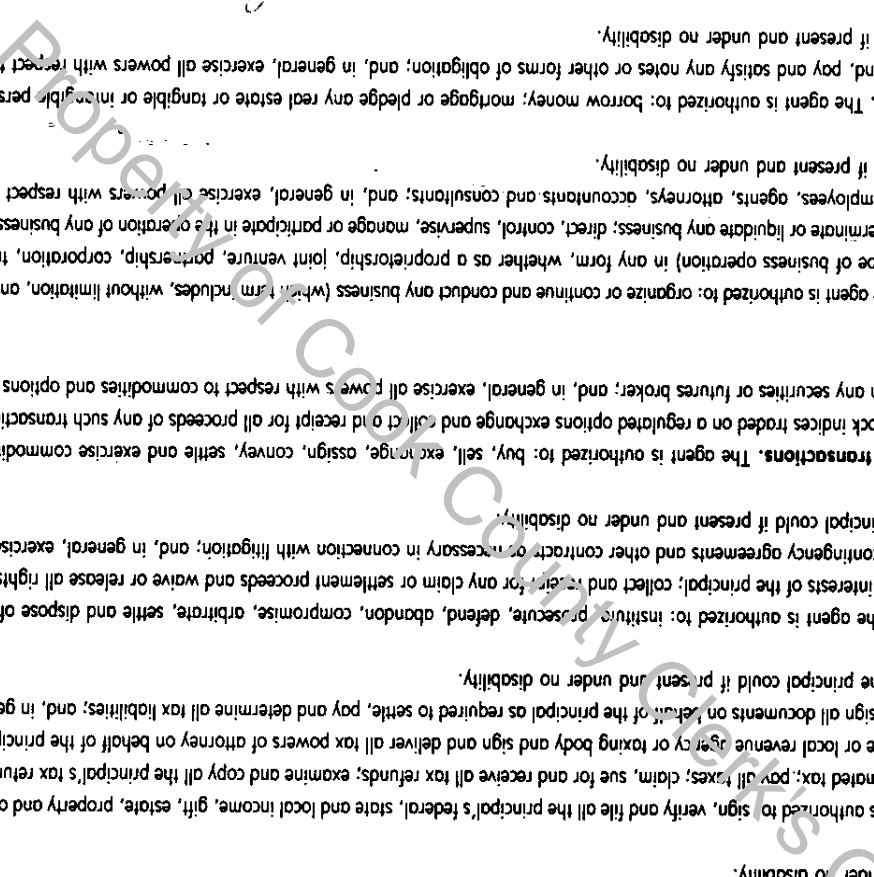 der no disability.
authorized to: sign, verify and file all the principal's federal, state and local income, gift, estate, property and
tax; pay all taxes; claim, sue for and receive all tax refunds; examine and copy all the principal's tax
or local revenue agency or taxing body and sign and deliver all tax powers of attorney on behalf of the
sign all documents on behalf of the principal as required to settle, pay and determine all tax liabilities; and, in
principal could if present and under no disability.
agent is authorized to: institute, prosecute, defend, abandon, compromise, arbitrate, settle and dispose of
interests of the principal; collect and receipt for any claim or settlement proceeds and waive or release all rights
contingency agreements and other contracts as necessary in connection with litigation; and, in general, exercise
incipal could if present and under no disability.
transactions. The agent is authorized to: buy, sell, exchange, assign, convey, settle and exercise commodi
ock indices traded on a regulated options exchange and collect and receipt for all proceeds of any such transacti
any securities or futures broker; and, in general, exercise all powers with respect to commodities and options
agent is authorized to: organize or continue and conduct any business (which term includes, without limitation, an
pe of business operation) in any form, whether as a proprietorship, joint venture, partnership, corporation, tr
erminate or liquidate any business; direct, control, supervise, manage or participate in the operation of any business
mployees, agents, attorneys, accountants and consultants; and, in general, exercise all powers with respect
if present and under no disability.
. The agent is authorized to: borrow money; mortgage or pledge any real estate or tangible or intangible pers
nd, pay and satisfy any notes or other forms of obligation; and, in general, exercise all powers with respect t
if present and under no disability.
Property of Cook County Clerk's